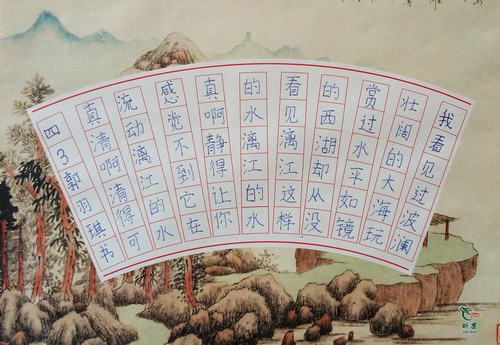 我看见过波澜
壮阔的大海玩
赏过水平如镜
的西湖却从没
看见漓江这样
的水漓江的水
真啊静得让你
感觉不到它在
流动漓江的水
真清啊清得可
四3郭羽琪书